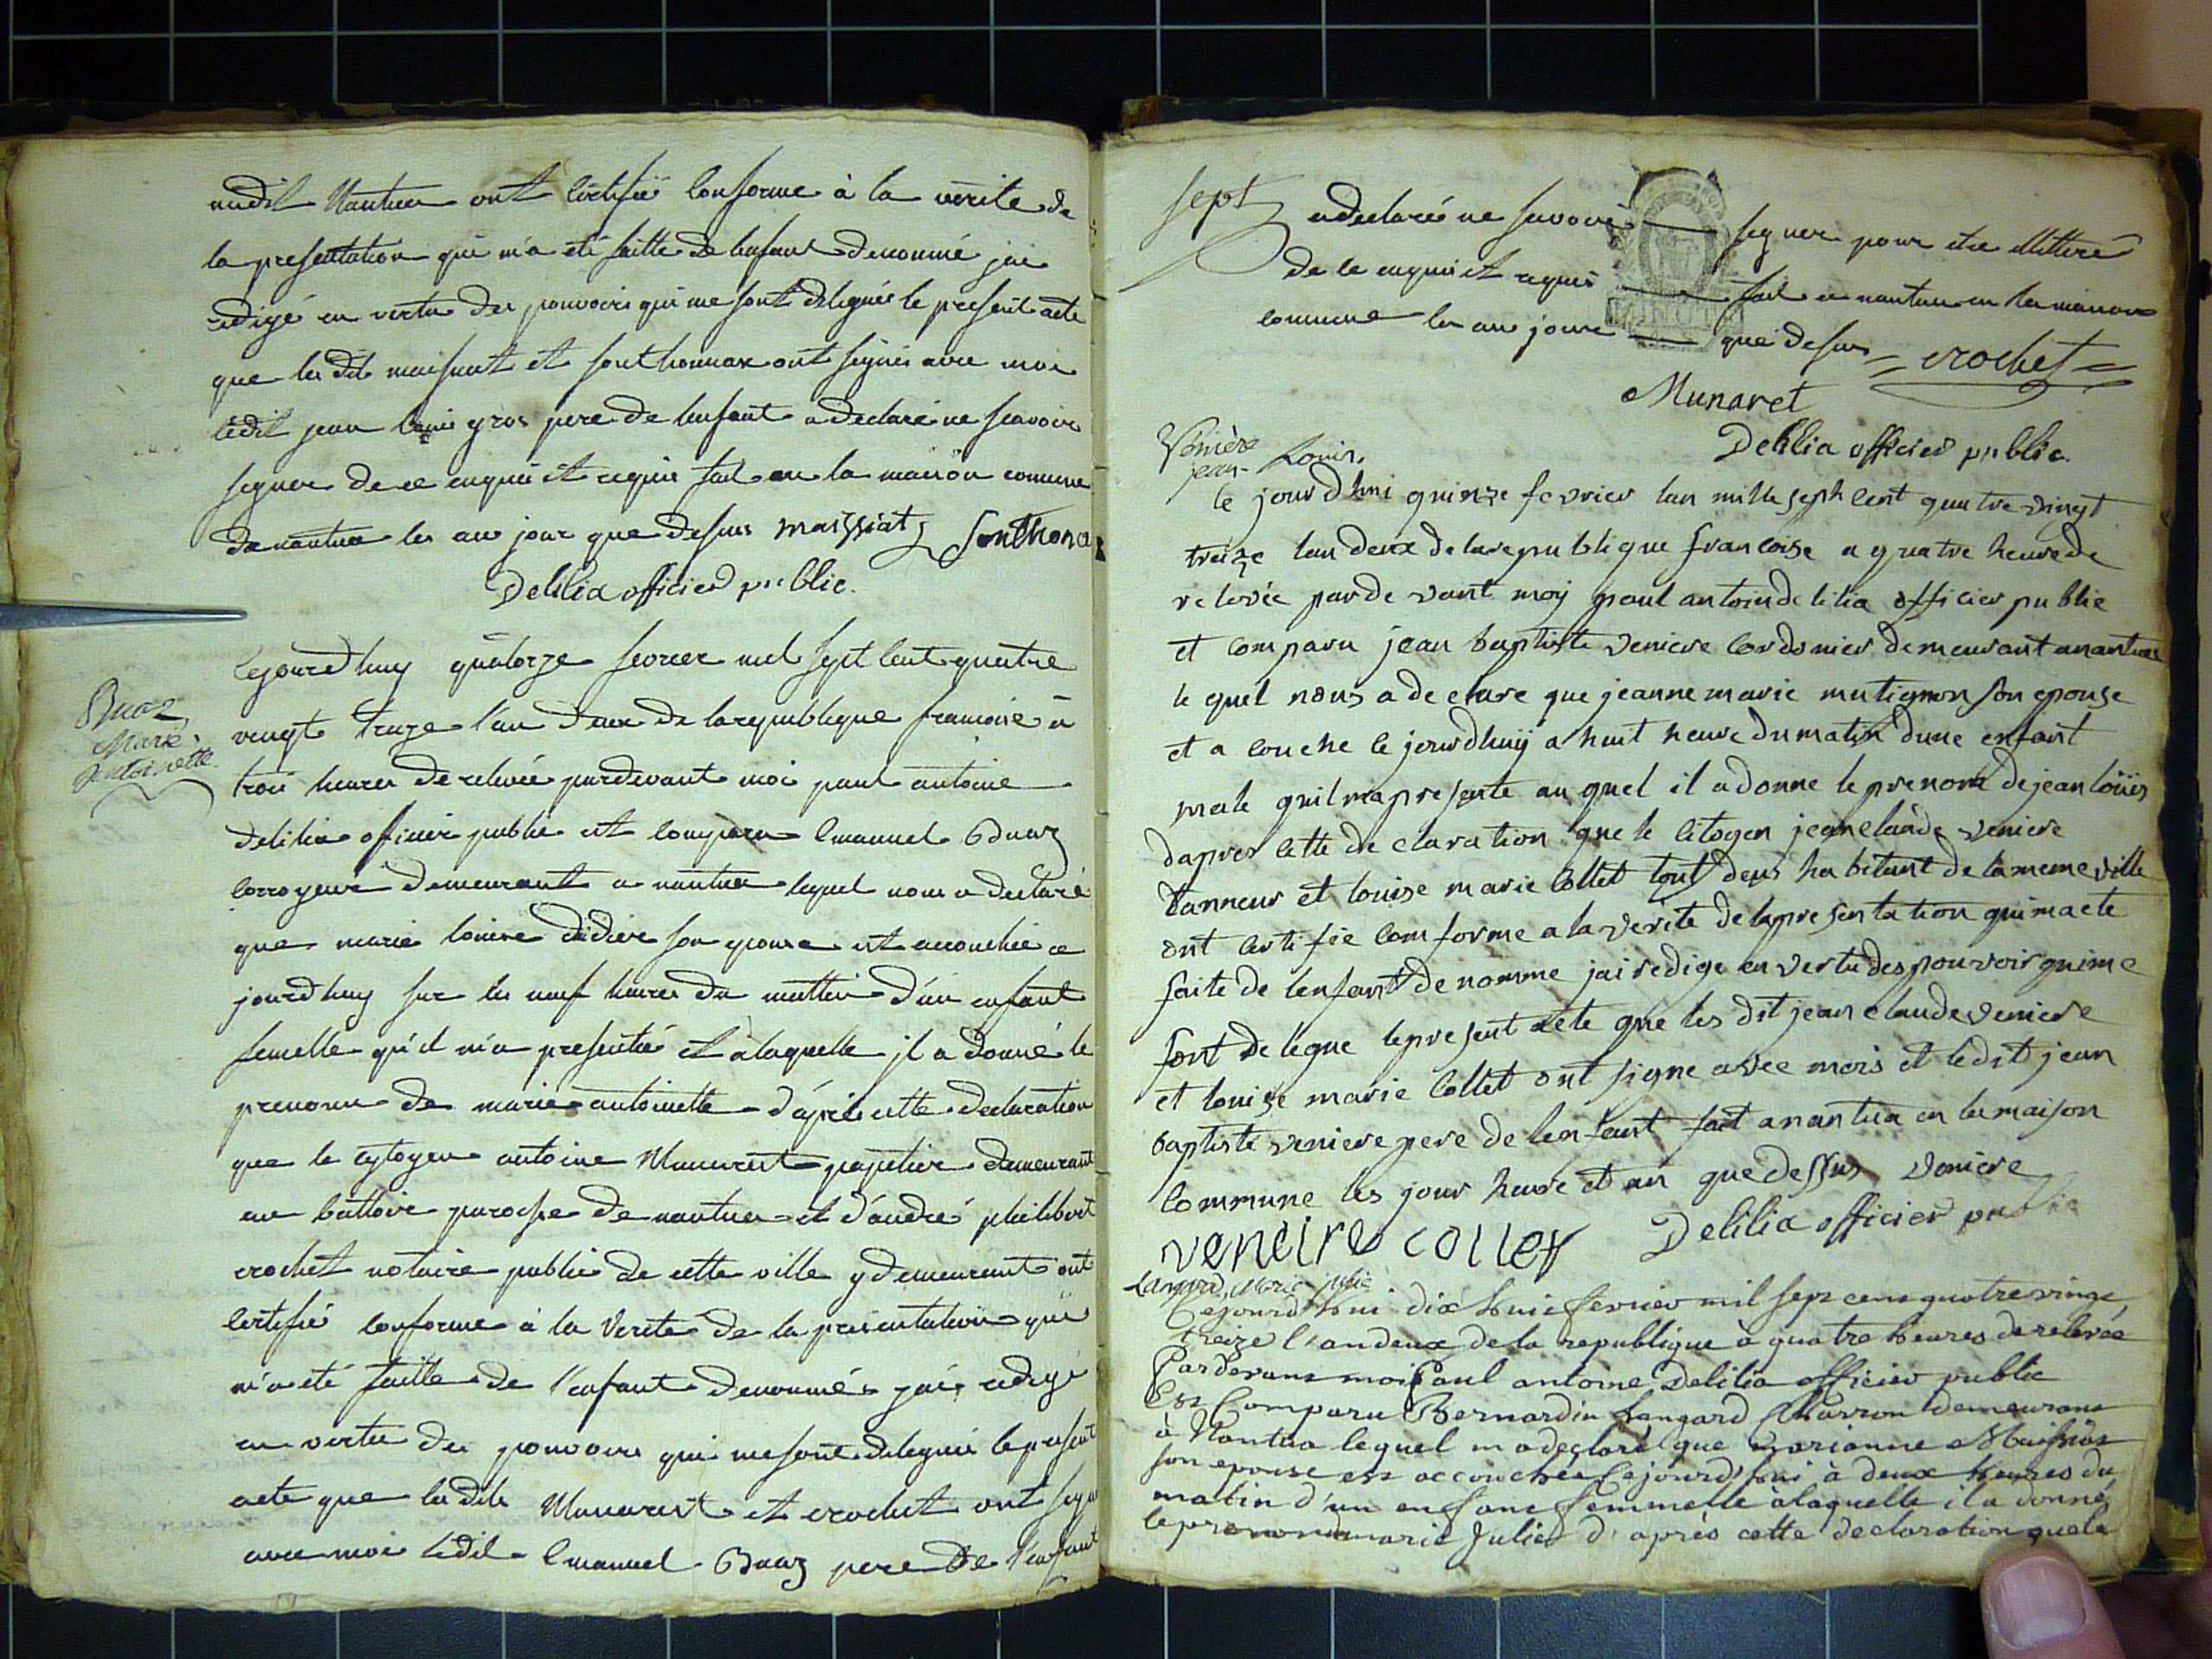 audit Nantua ont certifié conforme à la verite de
la presentation qui m'a été faitte de lenfant denommé jai
redigé en vertu des pouvoirs qui me sont délegués le present acte
que les dits maissiat et sonthonnax ont signés avec moi
ledit jean louis gros pere de lenfant a declaré ne scavoir
signer de ce enquis et requis fait en la maison comune
de nantua les an jour que desus maissiat Sonthona
Delilia officier public.
Buaz
Marie
Antoinette
Cejourdhuy quatorze fevrier mil sept cent quatre
vingt treize l'an deux de la republique francoise à
trois heures de relevée pardevant moi paul antoine
delilia officier public est comparu Emanuel Buaz
corroyeur demeurant a nantua lequel nous a declaré
que marie louise didier son epouse est accouchée ce
jourdhuy sur les neuf heures du mattin d'un enfant
femelle qu'il m'a presentée et à laquelle il a donné le
prenom de marie antoinette d'après cette declaration
que le cytoyen antoine Munaret papetier demeurant
au battoir paroisse de nantua et d'andré philibert
crochet notaire public de cette ville y demeurant ont
certifié conforme à la verite de la presentation qui
m'a été faitte de l'enfant denommée j'ai redigé
en vertu des pouvoirs qui me sont delegués le present
acte que les dits Munaret et crochet ont signé
avec moi ledit Emanuel Buaz pere de l'enfant
sept
a declaré ne savoir signer pour etre illitéré
de ce enquis et requis fait a nantua en la maison
comune les an jour que desus crochet
Munaret
Delilia officier public.
Venière
jean-Louis.
le jourdhui quinze fevrier lan mille sept cent quatre vingt
treize lan deux de la republique francoise a quatre heure de
relevée par de vant moy paul antoin delilia officier public
et comparu jean baptiste veniere cordonier demeurant anantua
le quel nous a declare que jeanne marie mutignon son epouse
et a couche le jourdhuij a huit heure dumatin dune enfant
male quil ma presente au quel il a donne le prenom de jean loüis
dapres cette de claration que le citoyen jean claude veniere
tanneur et louise marie collet tout deux habitant de la meme ville
ont certifié comforme a la verite de la presentation qui mаete
faite de lenfant de nomme jai redige en vertu des pouvoir qui me
sont delegue le present acte que les dit jean claude veniere
et louise marie collet ont signe avec mois et ledit jean
baptiste veniere pere de lenfant fait anantua en la maison
commune les jour heure et an que dessus veniere
veneire collet Delilia officier public
Langard, Marie-Julie
Cejourd'hui dix huit fevrier mil sept cens quatre vingt
treize l'an deux de la republique à quatre heures de relevée
Pardevant moi Paul antoine Delilia officier public
Est Comparu Bernardin Langard Charron demeurant
à Nantua lequel m'a declaré que marianne Maissiat
son epouse est accouchée Cejourd'hui à deux heures du
matin d'un enfant femmelle à laquelle il a donné
le prenom de marie Julie d'après cette declaration que le